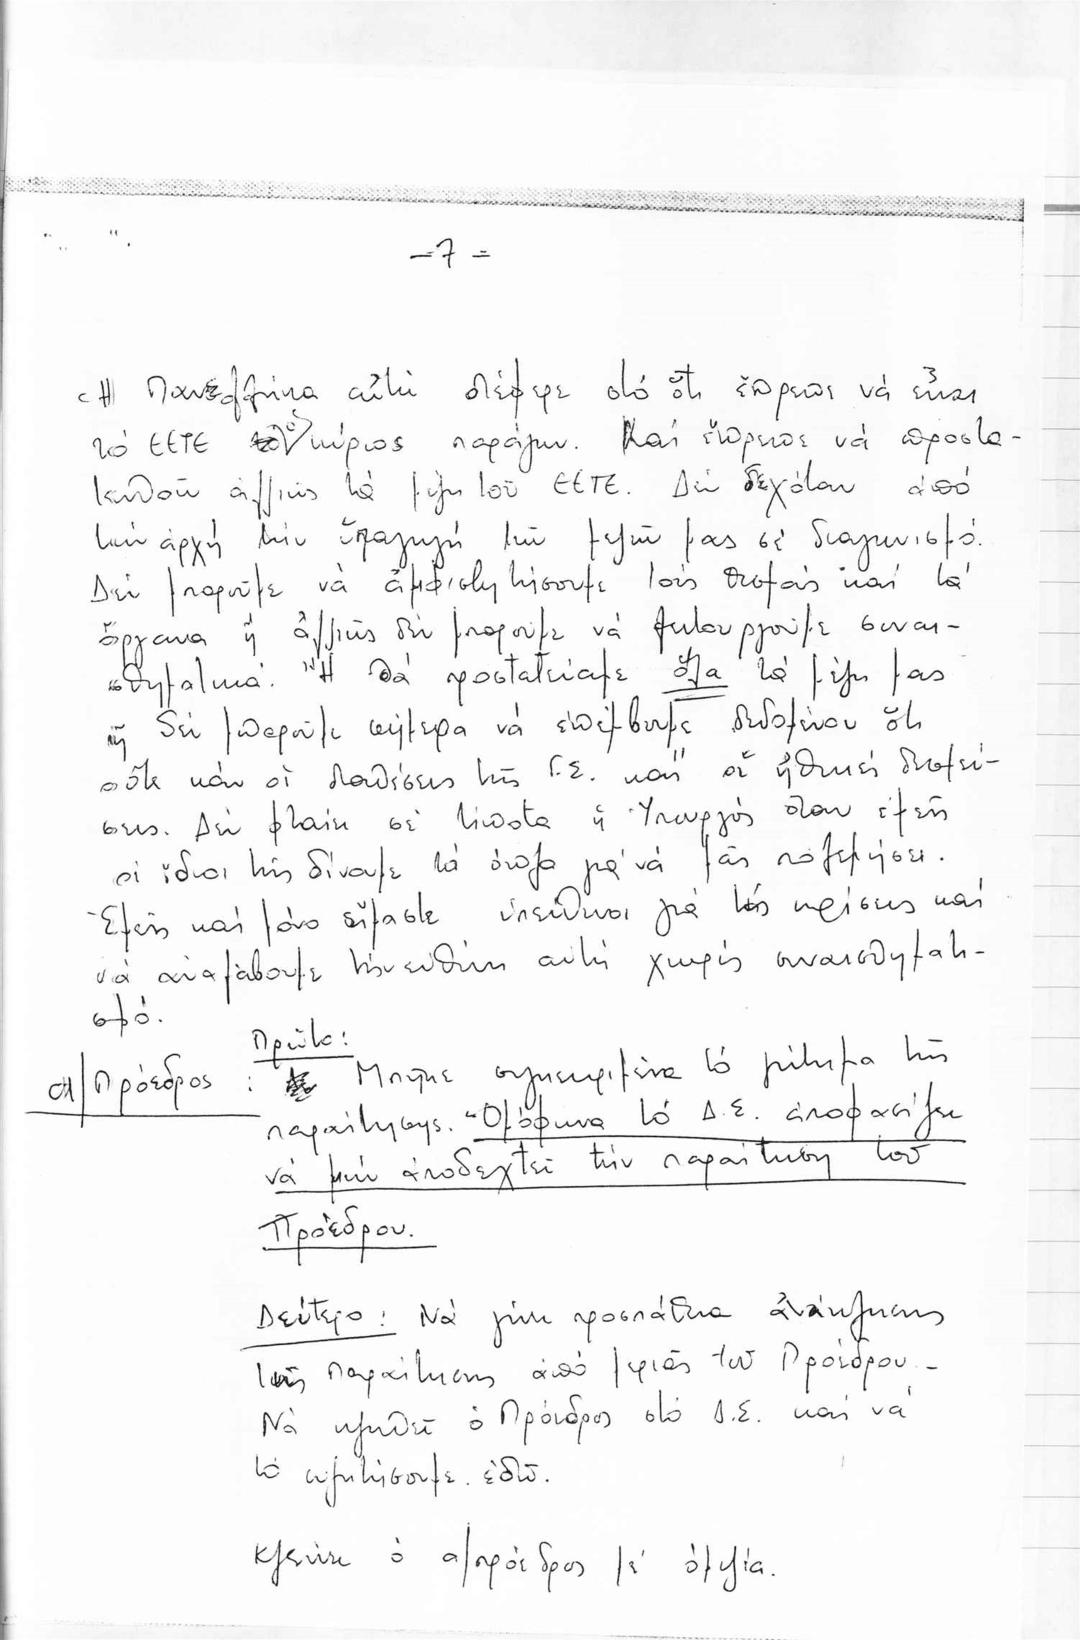 - 7 =
Ἡ Πανελλήνια αὐτή διέφερε στό ὅτι ἔπρεπε νά εἶναι
τό ΕΕΤΕ ὁ κύριος παράγων. Καί ἔπρεπε νά προστα-
τευθοῦν ἀλλιῶς τά μέλη τοῦ ΕΕΤΕ. Δέν δεχόταν ἀπό
τήν ἀρχή τήν ὑπαγωγή τῶν μελῶν μας σέ διαγωνισμό.
Δέν μποροῦμε νά ἀμφισβητήσουμε τούς θεσμούς καί τά
ὄργανα ἤ ἀλλιῶς δέν μποροῦμε νά λειτουργοῦμε συναι-
σθηματικά. Ἤ θά προστατεύαμε ὅλα τά μέλη μας
ἤ δέν μποροῦμε σήμερα νά ἐπέμβουμε δεδομένου ὅτι
οὔτε κἄν οἱ διαθέσεις τῆς Γ.Σ. καί οἱ ἠθικές δεσμεύ-
σεις. Δέν φταίει σέ τίποτα ἡ Ὑπουργός ὅταν ἐμεῖς
οἱ ἴδιοι τῆς δίνουμε τά ὅπλα γιά νά μᾶς πολεμήσει.
Ἐμεῖς καί μόνο εἴμαστε ὑπεύθυνοι γιά τίς κρίσεις καί
νά ἀναλάβουμε τήν εὐθύνη αὐτή χωρίς συναισθηματι-
σμό.
α/Πρόεδρος : Πρῶτο:
Μπῆκε συγκεκριμένα τό μήνυμα τῆς
παραίτησης. Ὁμόφωνα τό Δ.Σ. ἀποφασίζει
νά μήν ἀποδεχτεῖ τήν παραίτηση τοῦ
Προέδρου.
Δεύτερο: Νά γίνει προσπάθεια ἀνάκλησης
τῆς παραίτησης ἀπό μεριᾶς τοῦ Προέδρου.-
Νά κληθεῖ ὁ Πρόεδρος στό Δ.Σ. καί νά
τό συζητήσουμε ἐδῶ.
Κλείνει ὁ α/πρόεδρος μέ ὁμιλία.